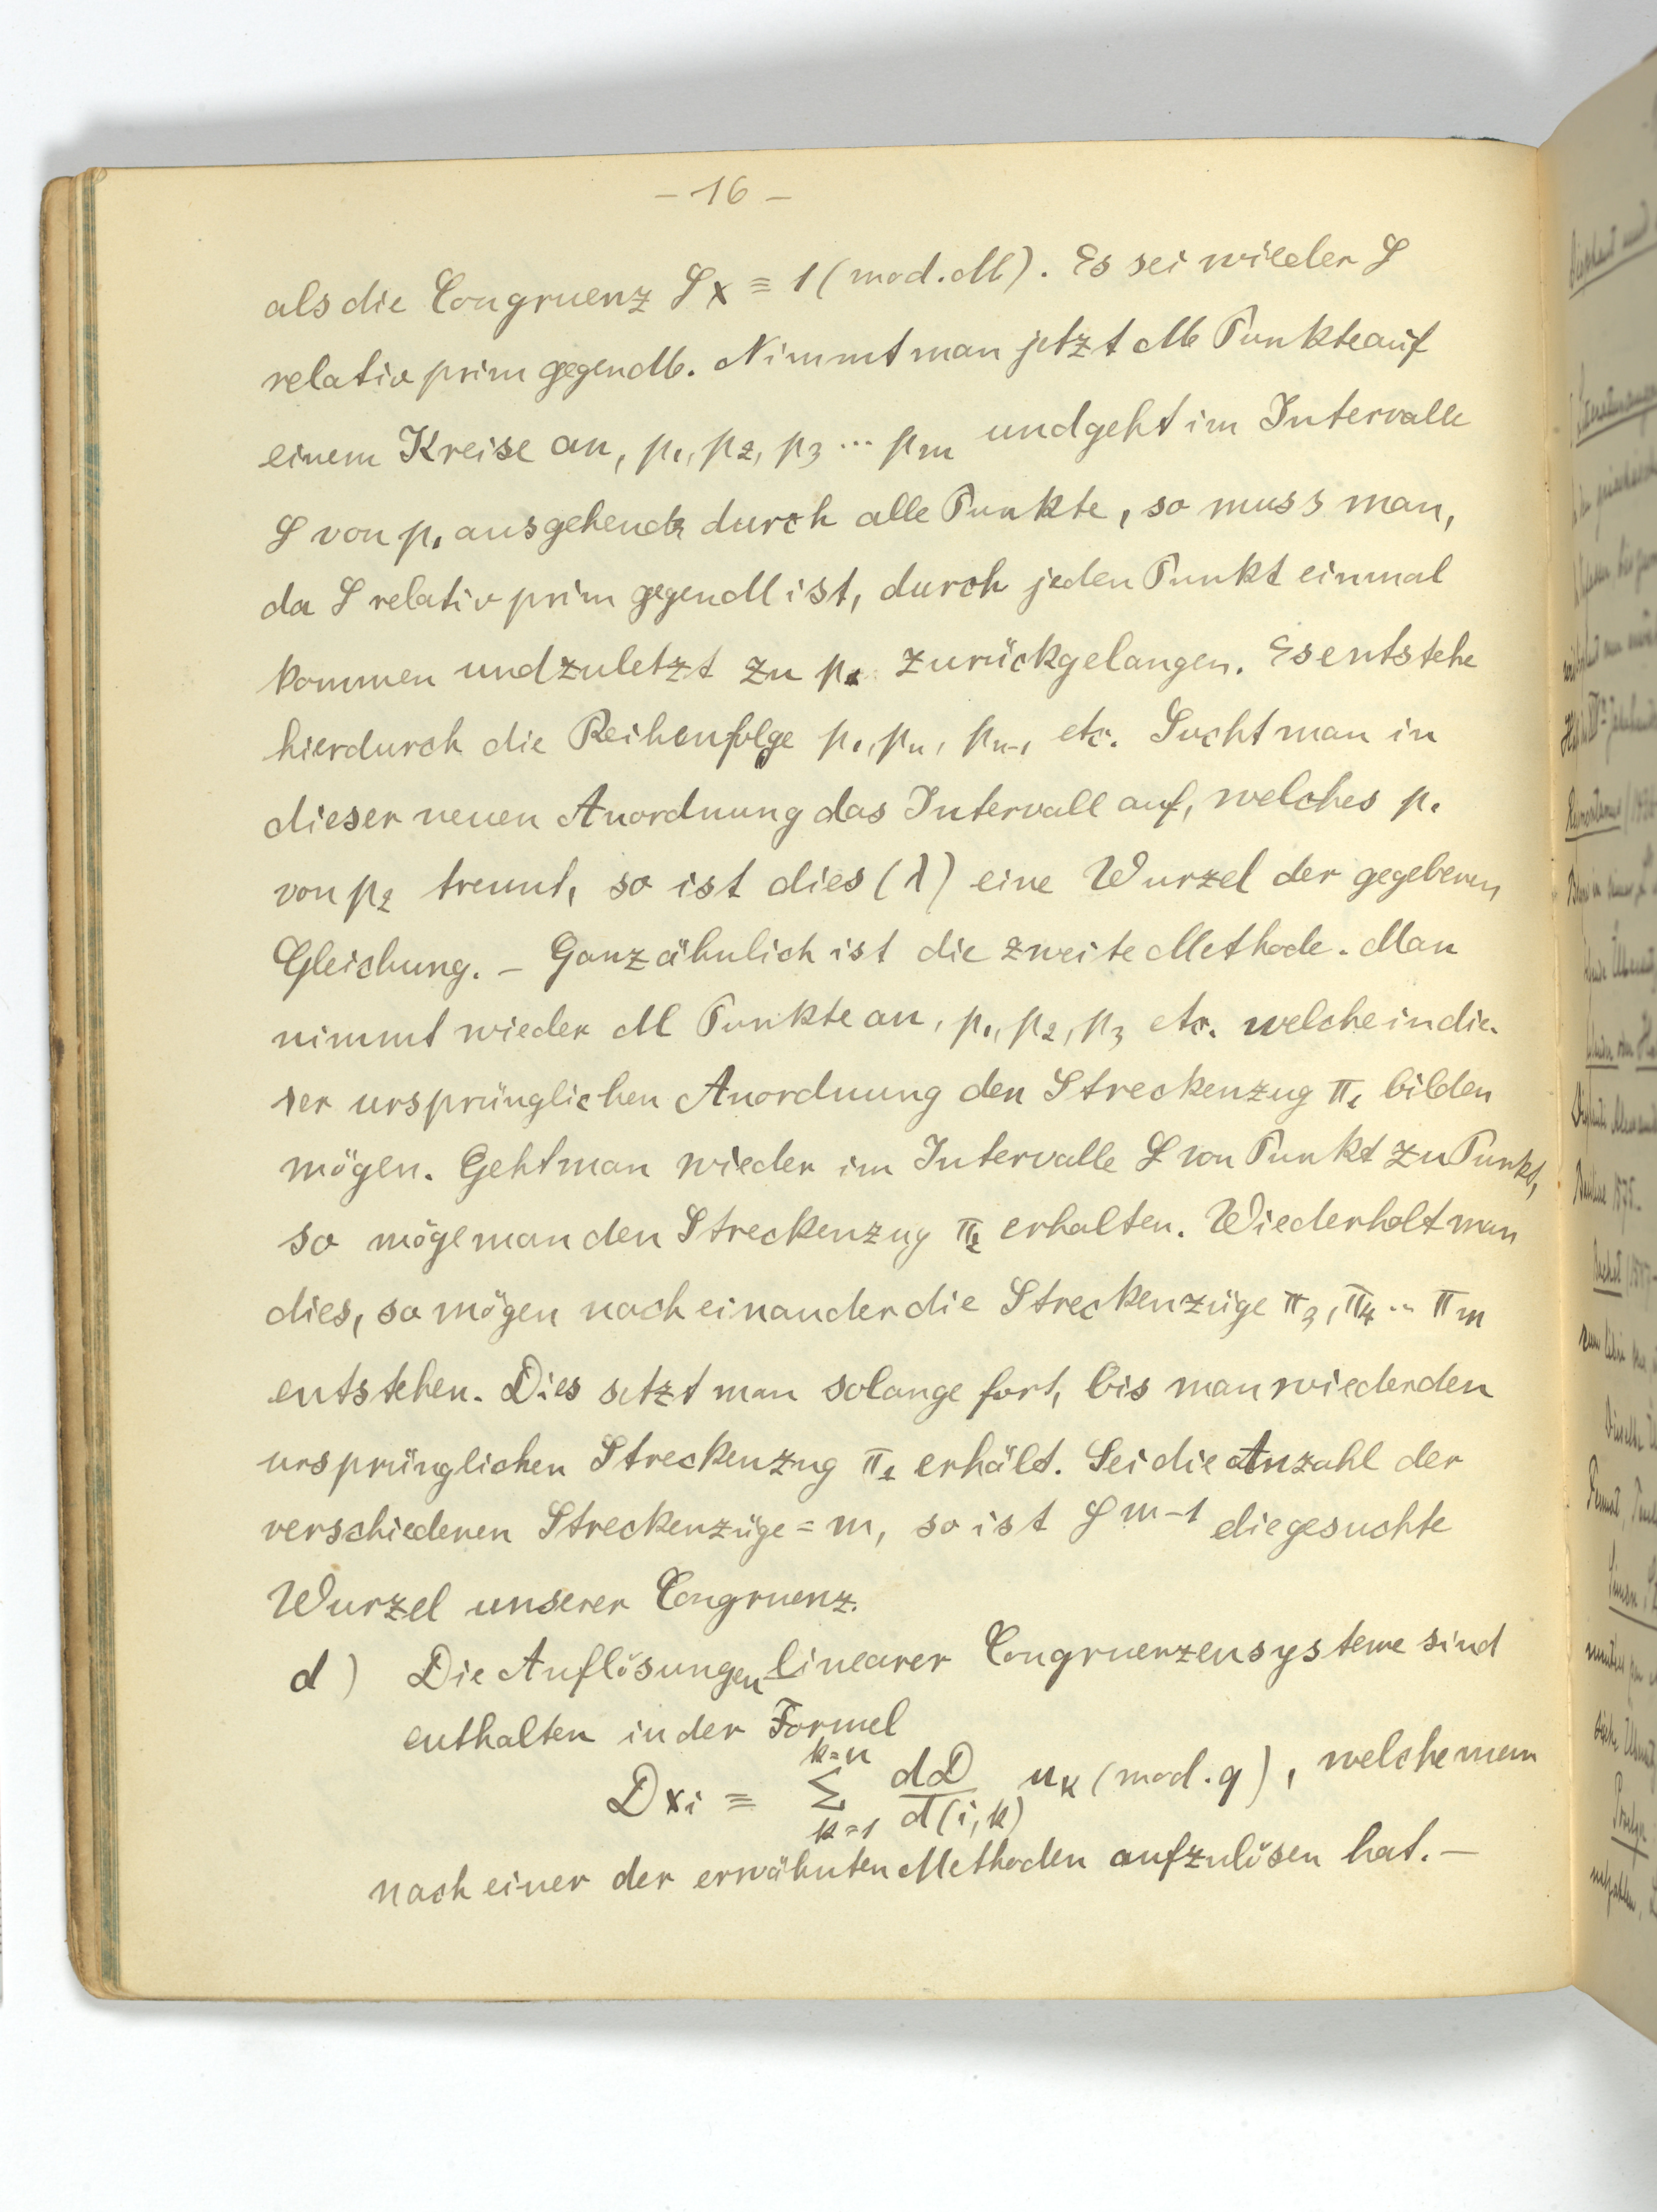 - 16 -
als die Congruenz S x ≡ 1 (mod. M). Es sei wieder S
relativ prim gegen M. Nimmt man jetzt M Punkte auf
einem Kreise an, p₁, p₂, p₃ ... pₘ und geht im Intervalle
S von p₁ ausgehend durch alle Punkte, so muss man,
da S relativ prim gegen M ist, durch jeden Punkt einmal
kommen und zuletzt zu p₁ zurückgelangen. Es entstehe
hierdurch die Reihenfolge p₁, pₙ, pₙ₋₁ etc. Sucht man in
dieser neuen Anordnung das Intervall auf, welches p₁
von p₂ trennt, so ist dies (λ) eine Wurzel der gegebenen
Gleichung. – Ganz ähnlich ist die zweite Methode. Man
nimmt wieder M Punkte an, p₁, p₂, p₃ etc. welche in die-
ser ursprünglichen Anordnung den Streckenzug π₁ bilden
mögen. Geht man wieder im Intervalle S von Punkt zu Punkt,
so möge man den Streckenzug π₂ erhalten. Wiederholt man
dies, so mögen nach einander die Streckenzüge π₃, π₄ .. πₘ
entstehen. Dies setzt man solange fort, bis man wieder den
ursprünglichen Streckenzug π₁ erhält. Sei die Anzahl der
verschiedenen Streckenzüge = m, so ist S^{m-1} die gesuchte
Wurzel unserer Congruenz.
d) Die Auflösungen linearer Congruenzensysteme sind
enthalten in der Formel
D xᵢ ≡ Σ_{k=1}^{k=n} dD/d(i,k) uₖ (mod. q), welche man
nach einer der erwähnten Methoden aufzulösen hat. –